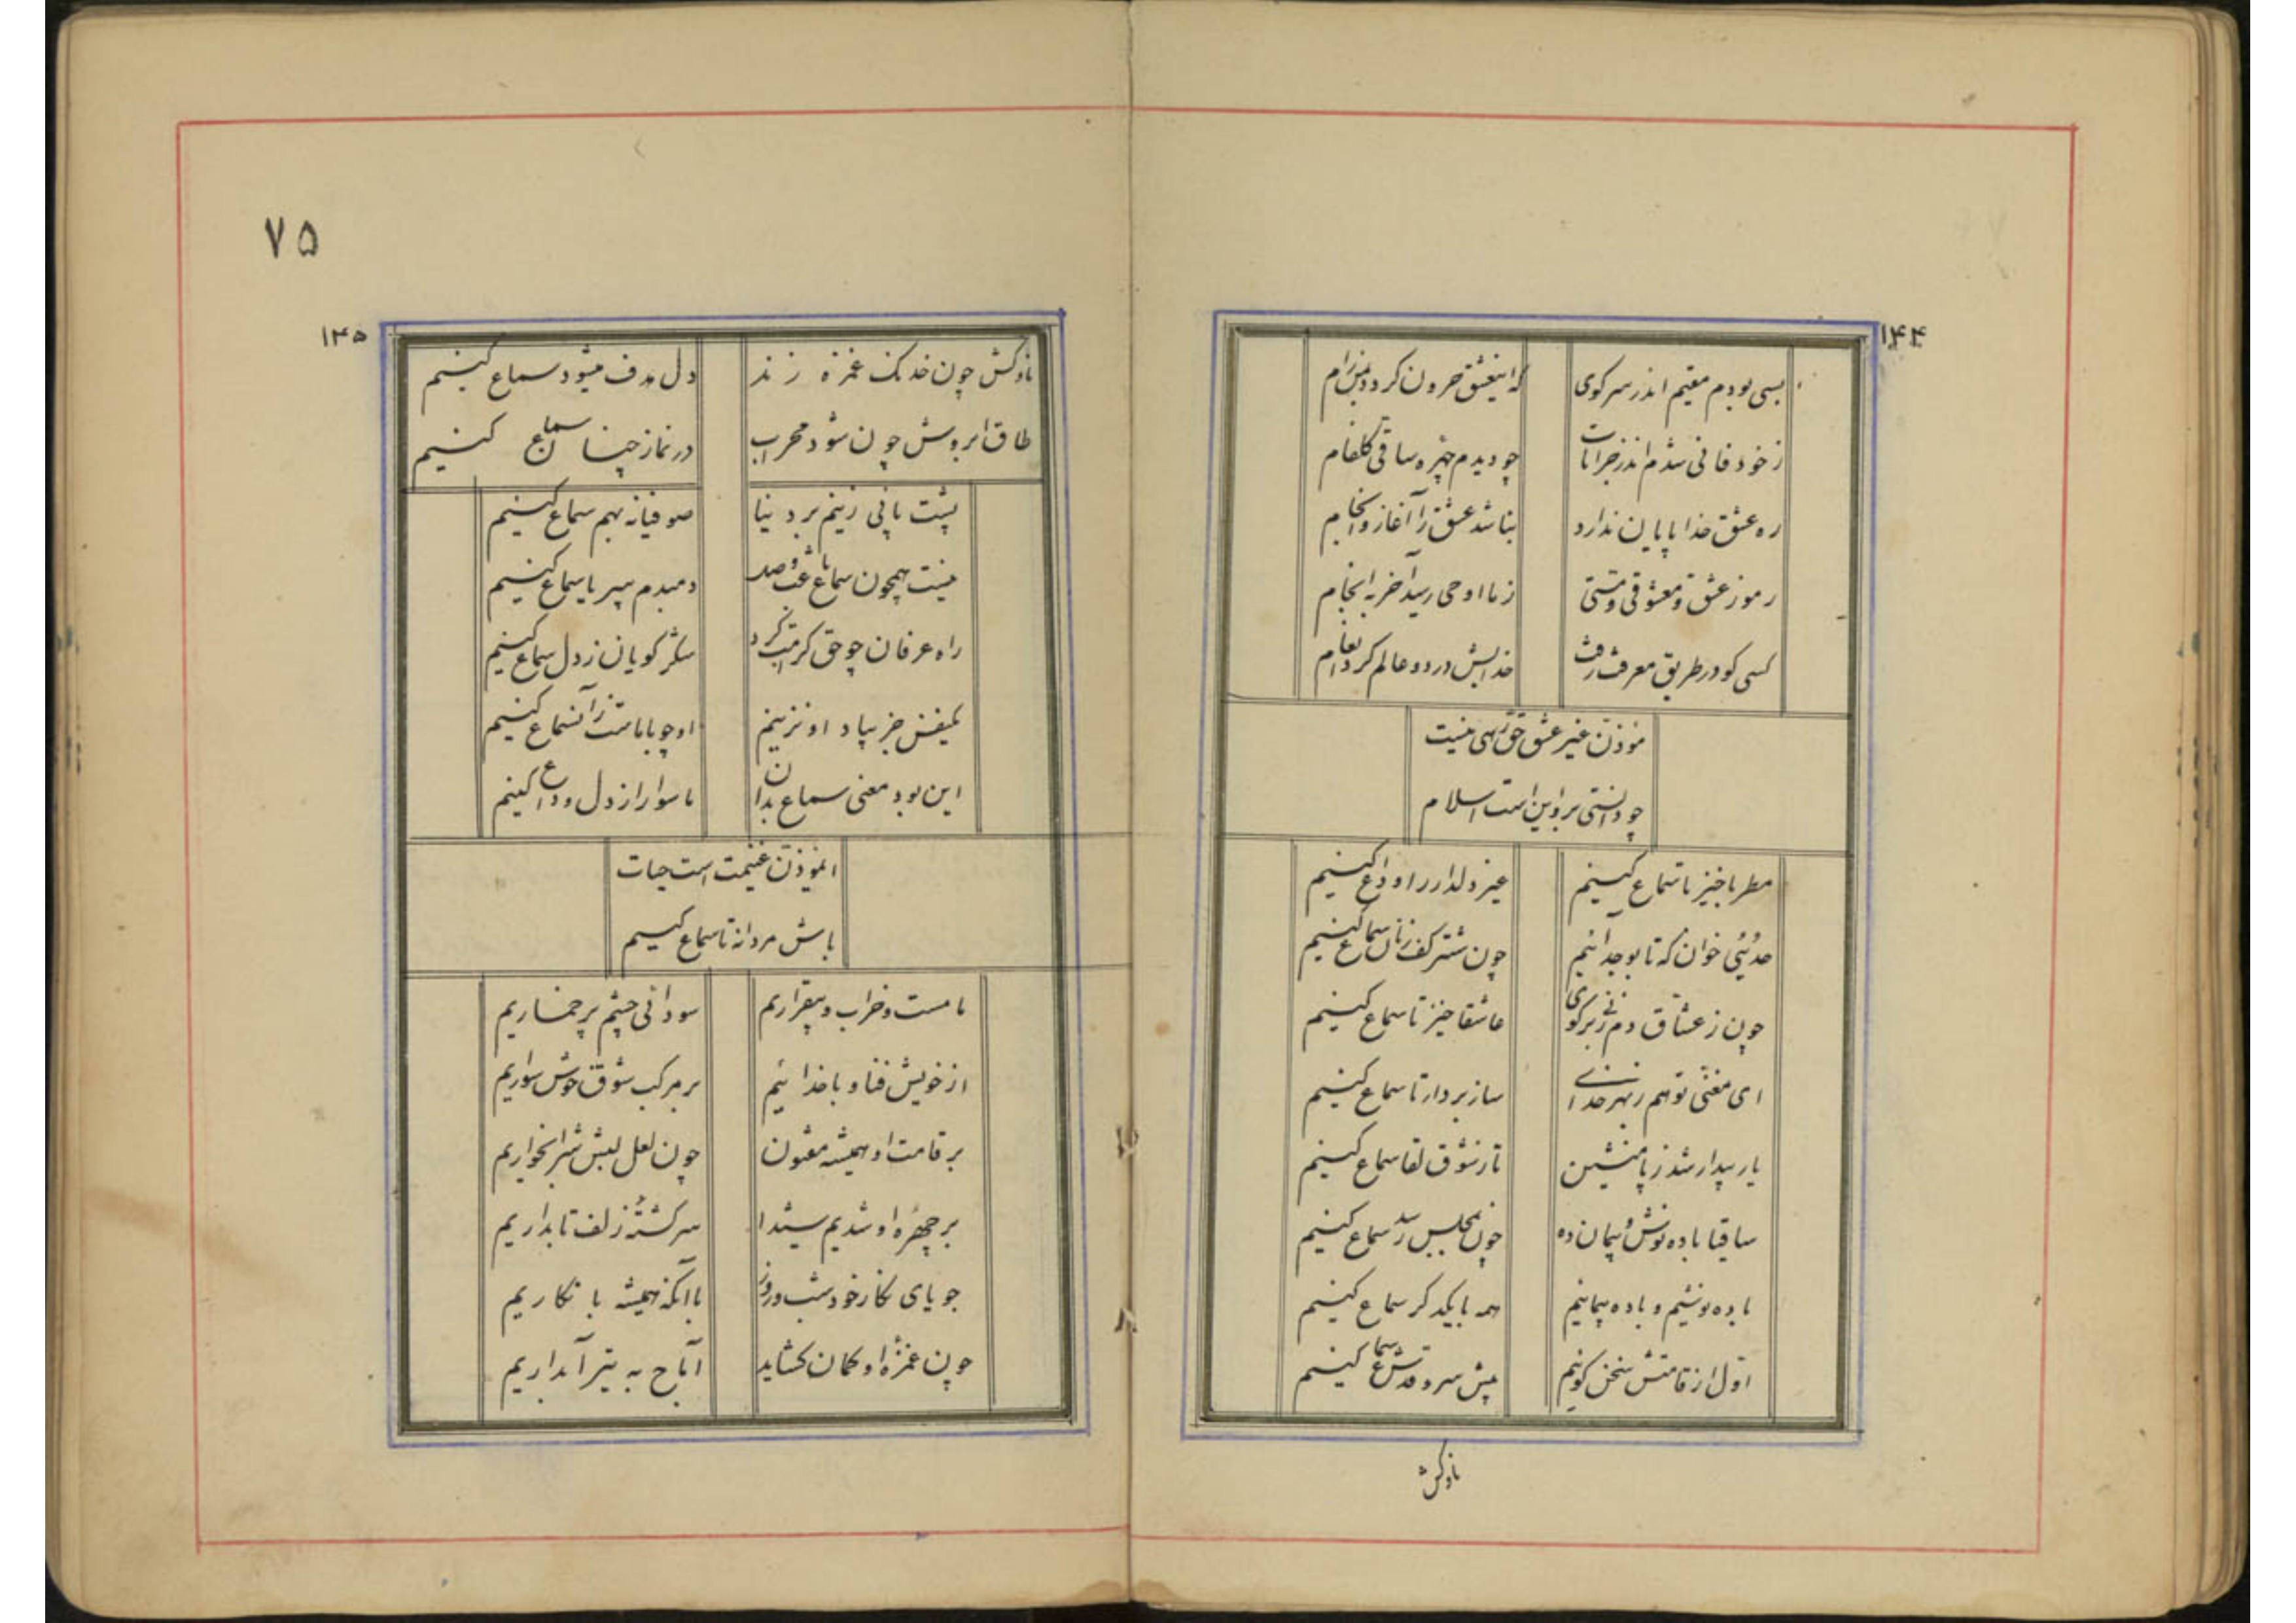 ۱۴۴
بسی بودم مقیم اندر سر کوی
که اینعشق حرون کرد
ز خود فانی شدم اندر خرابات
چو دیدم چهره ساقی گلفام
ره عشق خدا پایان ندارد
نباشد عشق را آغاز و انجام
رموز عشق و معشوقی و مستی
ز ما او حی رسید آخر به انجام
کسی کو در طریق معرفت رفت
خدایش در دو عالم کرد
موذن غیر عشق حق رهی نیست
چو دانستی برو این است اسلام
مطربا خیز تا سماع کنیم
غیر دلدار را وداع کنیم
حدیثی خوان که تا بوجد آئیم
چون شتر کف زنان سماع کنیم
چون ز عشاق دم زنی بر گوی
عاشقا خیز تا سماع کنیم
ای مغنی تو هم ز بهر خدای
ساز بردار تا سماع کنیم
یار بیدار شد ز پا منشین
تا ز شوق لقا سماع کنیم
ساقیا باده نوش و پیمان ده
چون بمجلس رسد سماع کنیم
باده نوشیم و باده پیمائیم
همه با یکدگر سماع کنیم
اول از قامتش سخن گوئیم
پیش سرو قدش سماع کنیم
ناوکش
۷۵
۱۴۵
ناوکش چون خدنگ غمزه زند
دل هدف میشود سماع کنیم
طاق ابروش چون شود محراب
در نماز چنان سماع کنیم
پشت پائی زنیم بر دنیا
صوفیانه بهم سماع کنیم
نیست همچون سماع باعث وصد
دمبدم بی ریا سماع کنیم
راه عرفان چو حق کرامت کرد
شکر گویان ز دل سماع کنیم
یکنفس جز بیاد او نزنیم
او چو با ماست زآن سماع کنیم
این بود معنی سماع بدان
ماسوا را از دل وداع کنیم
ایموذن غنیمت است حیات
باش مردانه تا سماع کنیم
ما مست و خراب و بیقراریم
سودائی چشم پر خماریم
از خویش فنا و با خدائیم
بر مرکب شوق خوش سواریم
بر قامت او همیشه مفتون
چون لعل لبش شرابخواریم
بر چهرهٔ او شدیم شیدا
سرگشتهٔ زلف تابداریم
جویای نگار خود شب و روز
با آنکه همیشه با نگاریم
چون غمزهٔ او کمان گشاید
آماج به تیر آبداریم